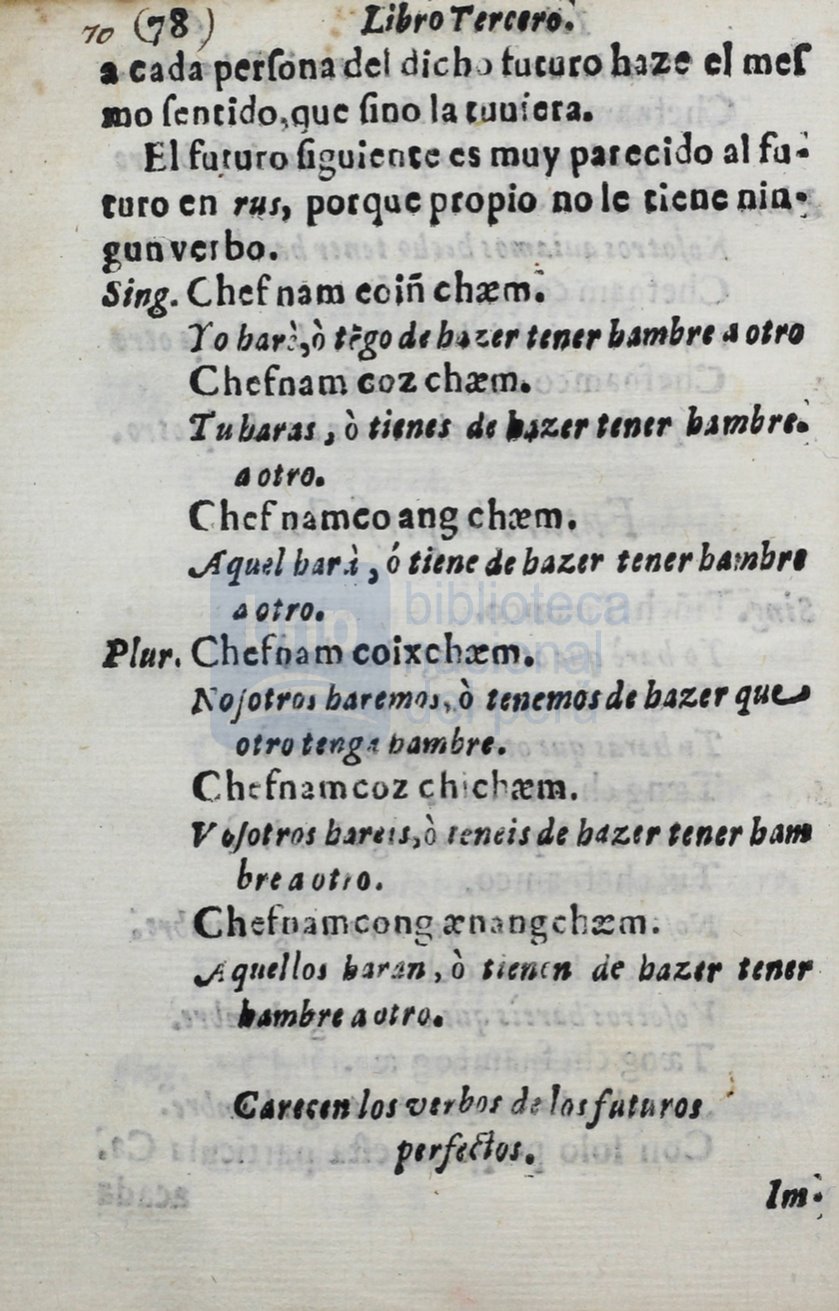 70 (78) Libro Tercero.
a cada perſona del dicho futuro haze el meſ
mo ſentido, que ſino la tuuiera.
El futuro ſiguiente es muy parecido al fu-
turo en rus, porque propio no le tiene nin-
gun verbo.
Sing. Chefnam eoiñ chæm.
Yo harè, ò tẽgo de hazer tener hambre a otro
Chefnam coz chæm.
Tu haras, ò tienes de hazer tener hambre.
a otro.
Chefnamco ang chæm.
Aquel harà, ó tiene de hazer tener hambre
a otro.
Plur. Chefnam coixchæm.
Noſotros haremos, ò tenemos de hazer que
otro tenga hambre.
Chefnamcoz chichæm.
Voſotros hareis, ò teneis de hazer tener ham
bre a otro.
Chefnamcong ænangchæm.
Aquellos haran, ò tienen de hazer tener
hambre a otro.
Carecen los verbos de los futuros
perfectos.
Im-
biblioteca
nacional
del perú
bnp